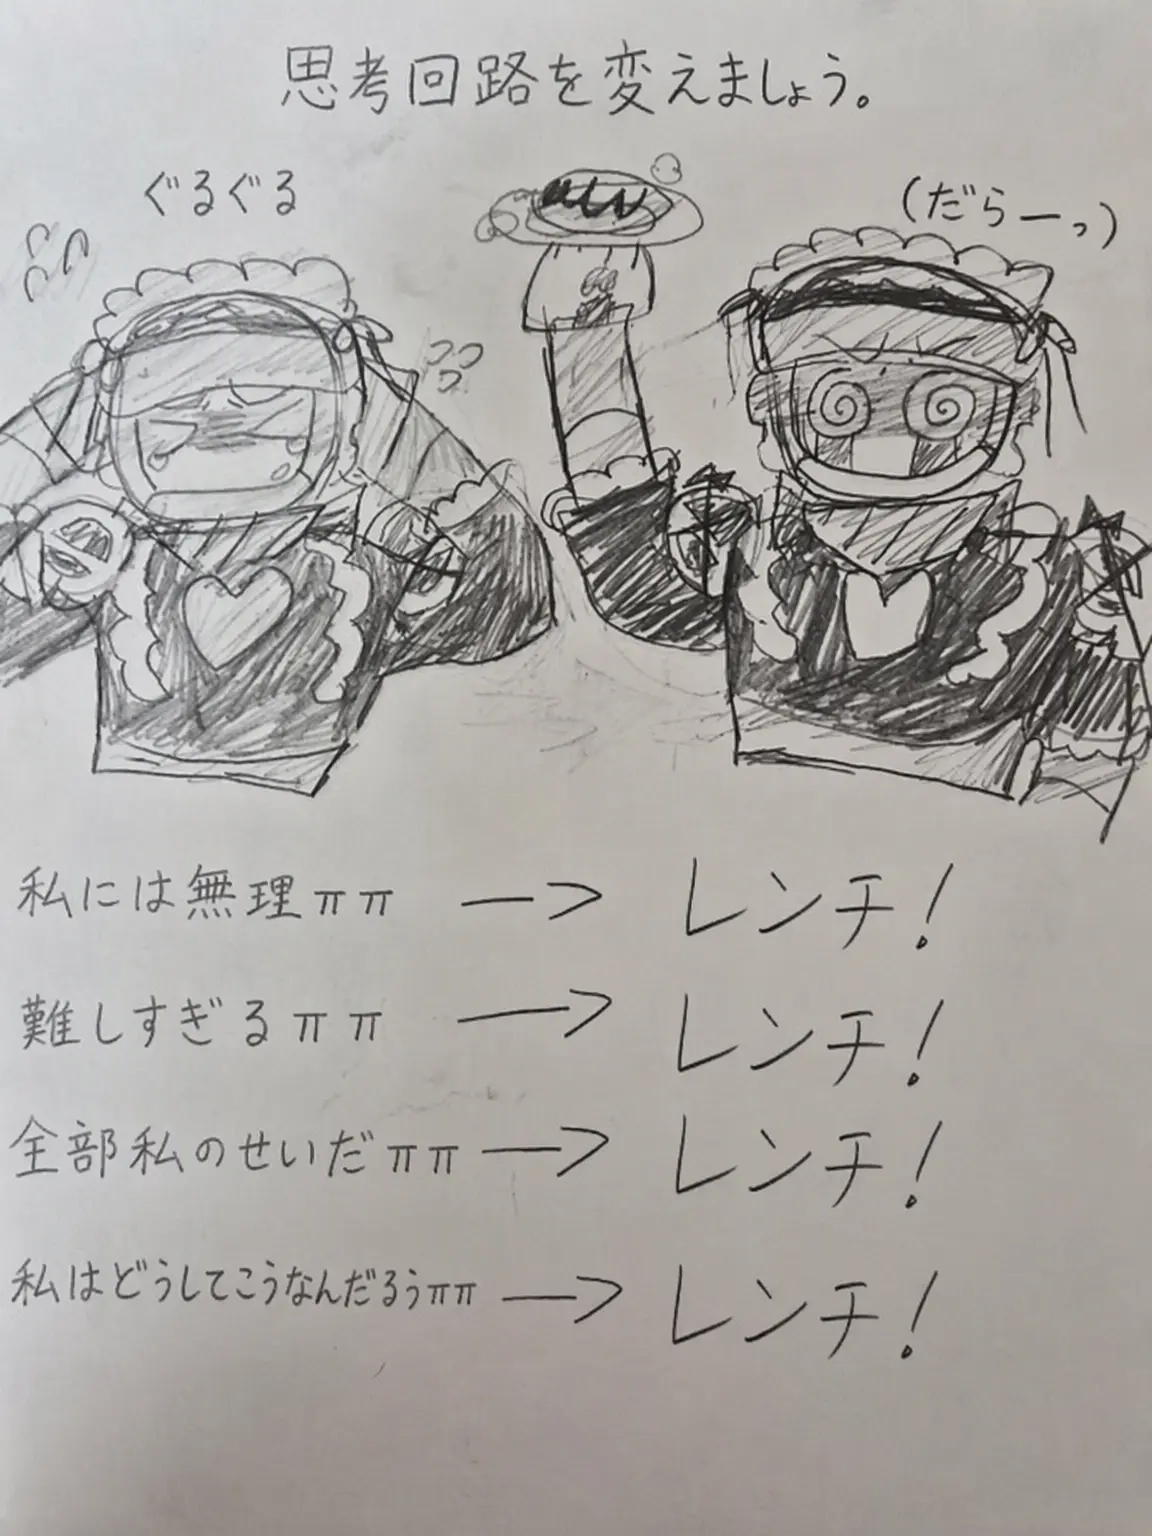 思考回路を変えましょう。
ぐるぐる
(だらーっ)
私には無理ππ → レンチ!
難しすぎるππ → レンチ!
全部私のせいだππ → レンチ!
私はどうしてこうなんだろぅππ → レンチ!